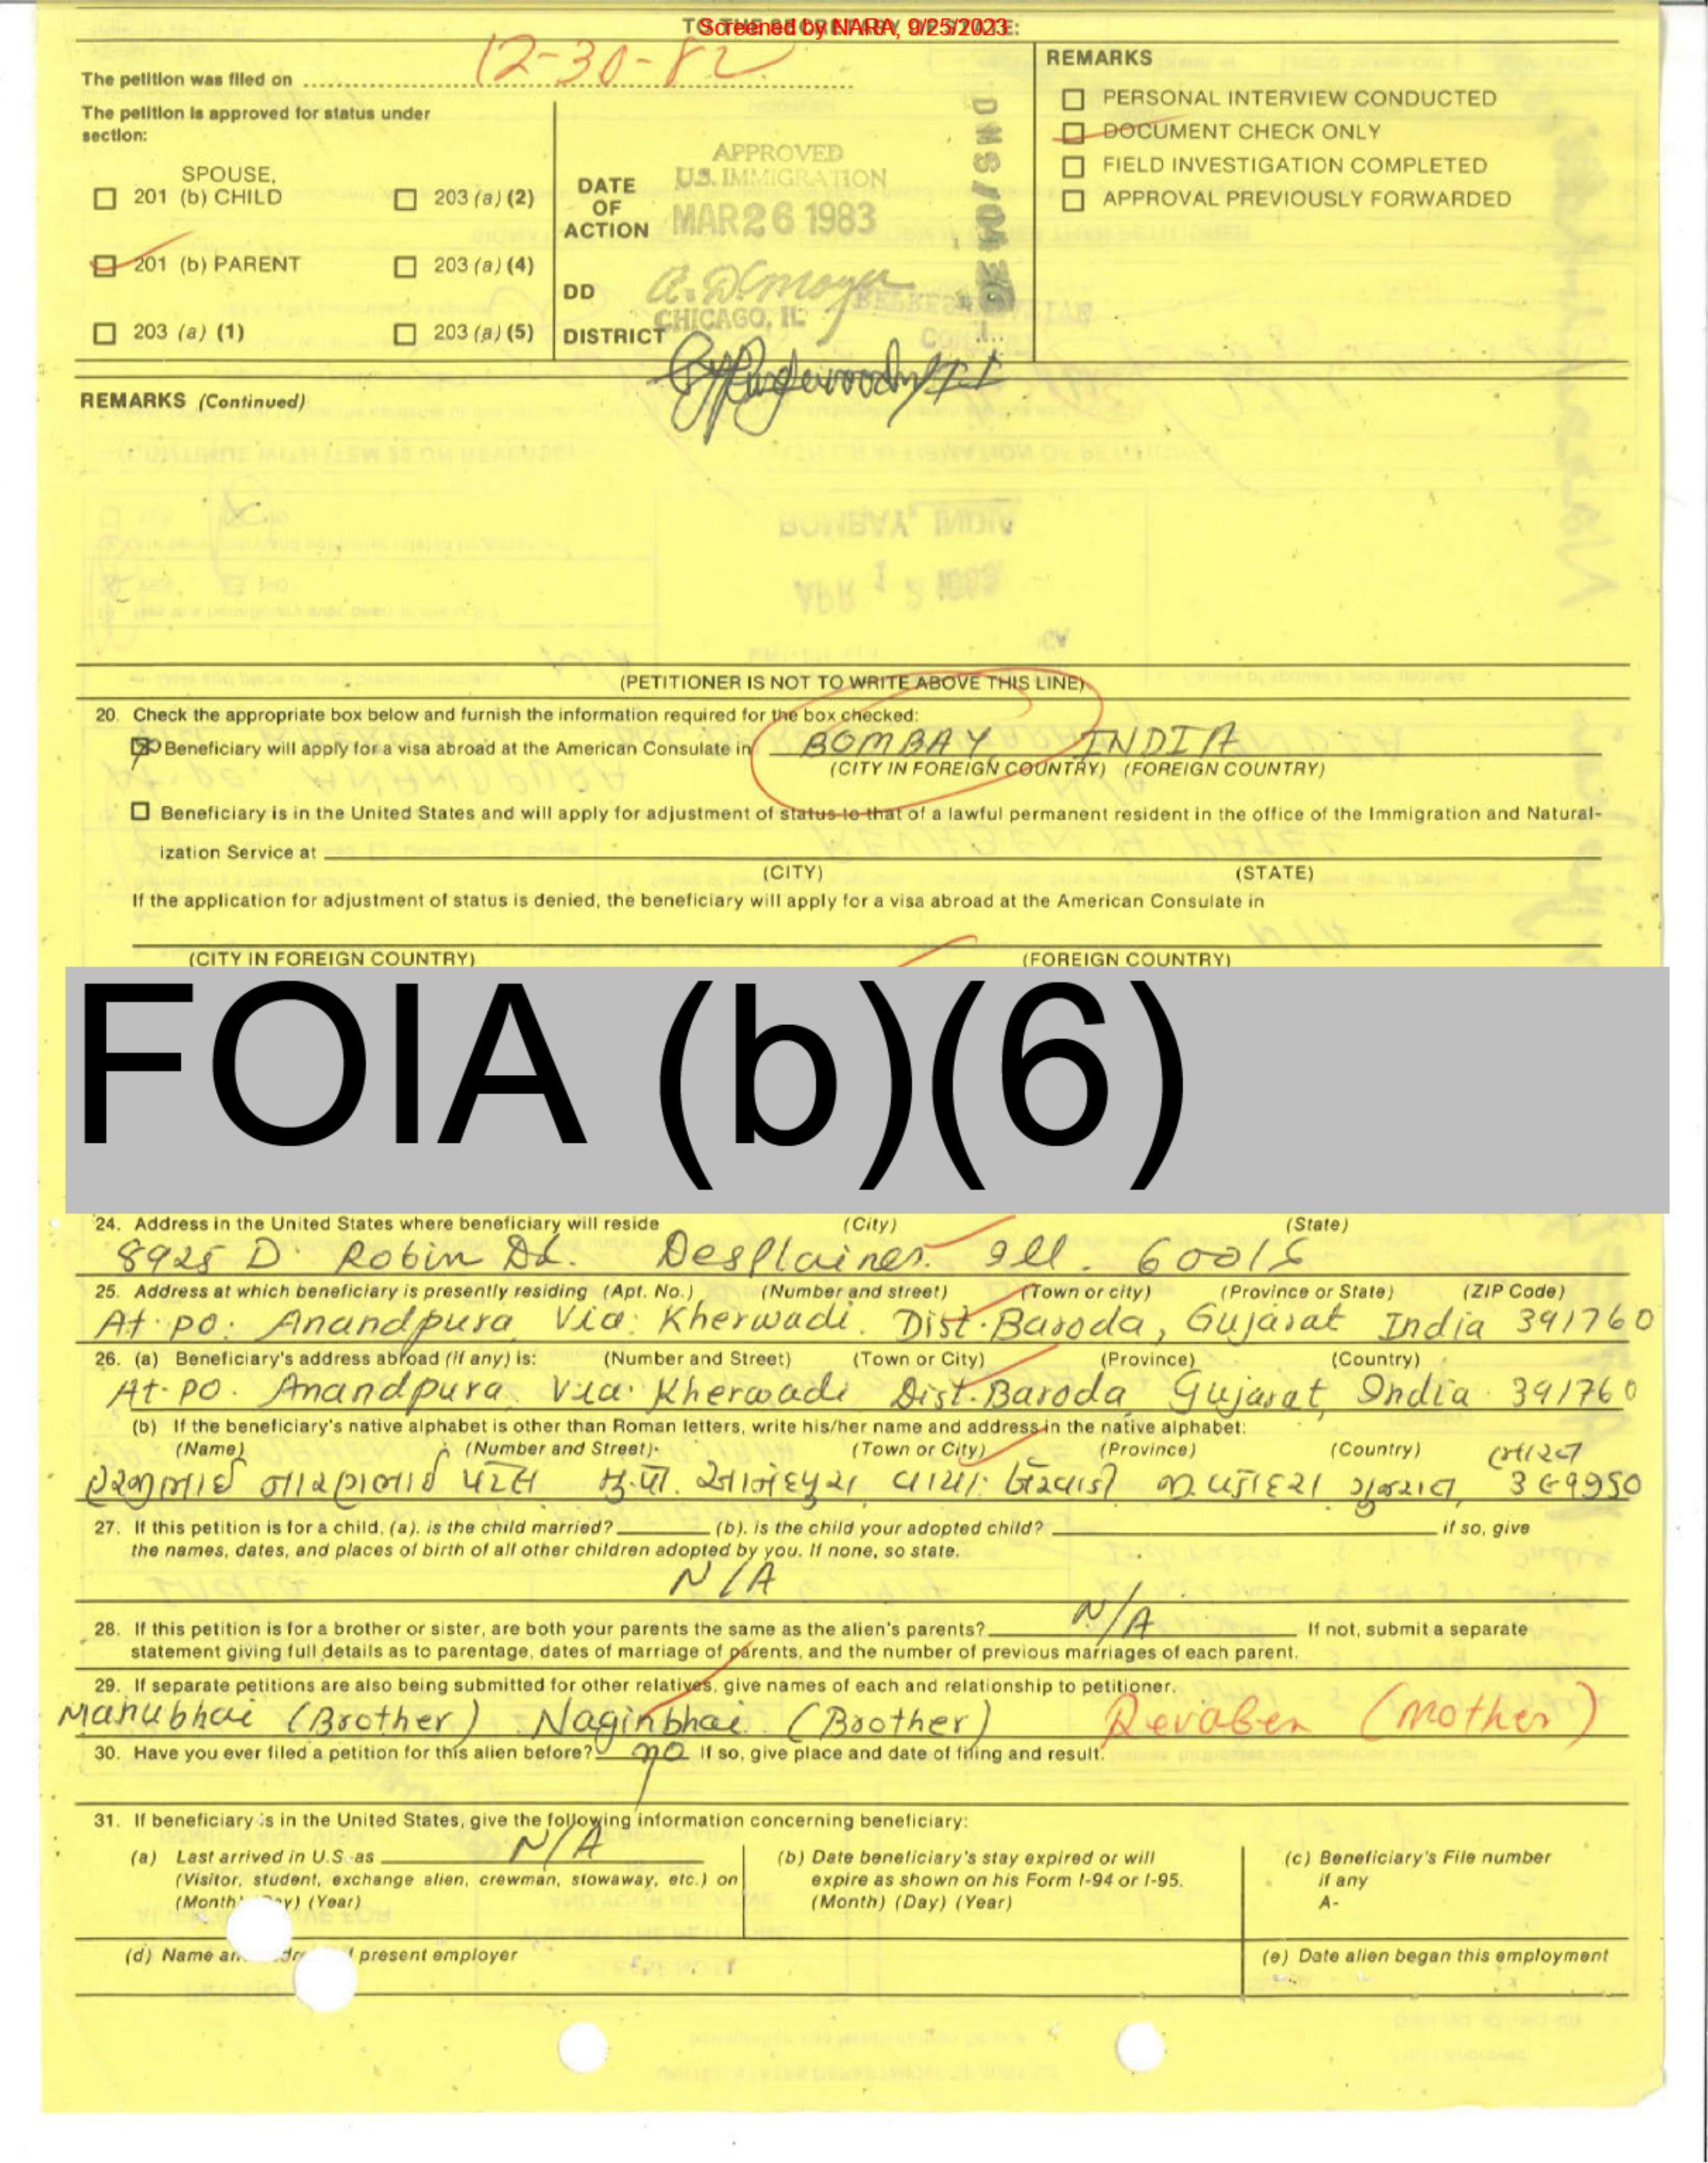 TO THE SECRETARY OF STATE:
Screened by NARA, 9/25/2023
The petition was filed on 12-30-82
The petition is approved for status under
section:
SPOUSE,
☐ 201 (b) CHILD ☐ 203 (a) (2)
☐ 201 (b) PARENT ☐ 203 (a) (4)
☐ 203 (a) (1) ☐ 203 (a) (5)
DATE
OF
ACTION
DD
DISTRICT
APPROVED
U.S. IMMIGRATION
MAR 26 1983
CHICAGO, IL
REMARKS
☐ PERSONAL INTERVIEW CONDUCTED
☐ DOCUMENT CHECK ONLY
☐ FIELD INVESTIGATION COMPLETED
☐ APPROVAL PREVIOUSLY FORWARDED
REMARKS (Continued)
(PETITIONER IS NOT TO WRITE ABOVE THIS LINE)
20. Check the appropriate box below and furnish the information required for the box checked:
Beneficiary will apply for a visa abroad at the American Consulate in BOMBAY INDIA
(CITY IN FOREIGN COUNTRY) (FOREIGN COUNTRY)
☐ Beneficiary is in the United States and will apply for adjustment of status to that of a lawful permanent resident in the office of the Immigration and Natural-
ization Service at
(CITY) (STATE)
If the application for adjustment of status is denied, the beneficiary will apply for a visa abroad at the American Consulate in
(CITY IN FOREIGN COUNTRY) (FOREIGN COUNTRY)
FOIA (b)(6)
24. Address in the United States where beneficiary will reside (City) (State)
8925 D. Robin Dr. Desplaines. Ill. 60016
25. Address at which beneficiary is presently residing (Apt. No.) (Number and street) (Town or city) (Province or State) (ZIP Code)
At. po. Anandpura Via: Kherwadi. Dist. Baroda, Gujarat India 391760
26. (a) Beneficiary's address abroad (if any) is: (Number and Street) (Town or City) (Province) (Country)
At. po. Anandpura. Via. Kherwadi Dist. Baroda Gujarat, India 391760
(b) If the beneficiary's native alphabet is other than Roman letters, write his/her name and address in the native alphabet:
(Name) (Number and Street) (Town or City) (Province) (Country) ભારત
પટેલ મુ.પો. આનંદપુરા વાયા: ખેરવાડી ગુજરાત, ૩૯૧૭૬૦
27. If this petition is for a child, (a). is the child married? (b). is the child your adopted child? if so, give
the names, dates, and places of birth of all other children adopted by you. If none, so state.
N/A
28. If this petition is for a brother or sister, are both your parents the same as the alien's parents? N/A If not, submit a separate
statement giving full details as to parentage, dates of marriage of parents, and the number of previous marriages of each parent.
29. If separate petitions are also being submitted for other relatives, give names of each and relationship to petitioner.
Manubhai (Brother) Naginbhai (Brother) Revaben (Mother)
30. Have you ever filed a petition for this alien before? no If so, give place and date of filing and result.
31. If beneficiary is in the United States, give the following information concerning beneficiary:
(a) Last arrived in U.S. as N/A
(Visitor, student, exchange alien, crewman, stowaway, etc.) on
(Month) (Year)
(b) Date beneficiary's stay expired or will
expire as shown on his Form I-94 or I-95.
(Month) (Day) (Year)
(c) Beneficiary's File number
if any
A-
(d) Name present employer
(e) Date alien began this employment